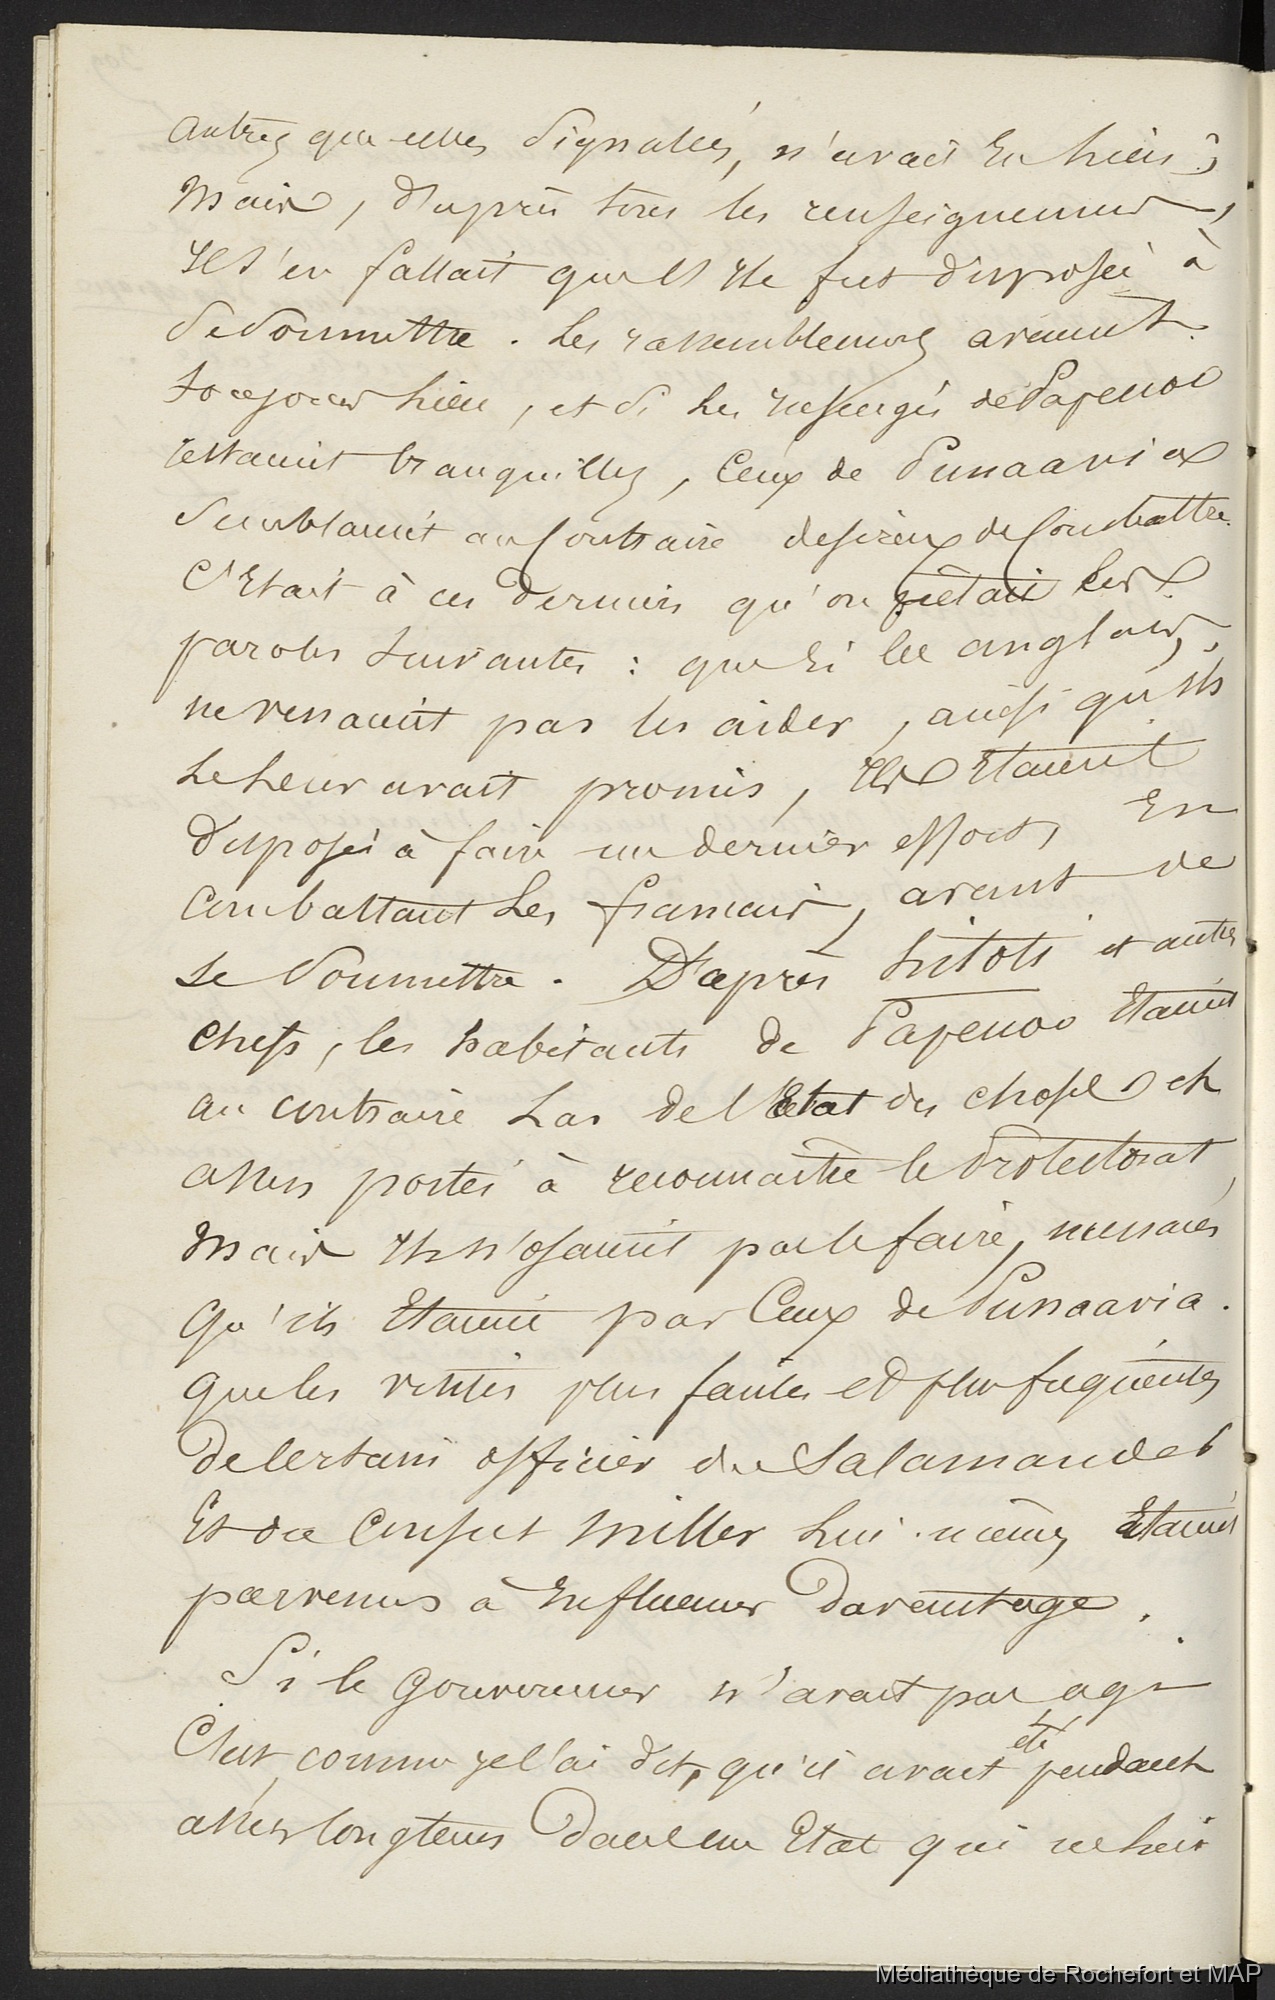 autres que celles signalées, n'avait eu lieu ;
Mais, d'après tous les renseignements,
il s'en fallait que l'Ile fut disposée à
se soumettre. Les rassemblements avaient
toujours lieu, et si les insurgés de Papenoo
restaient tranquilles, Ceux de Punaavia
semblaient au Contraire desireux de Combattre.
C'Etait à ces derniers qu'on prêtait les
paroles suivantes : que si les anglais,
ne venaient pas les aider, ainsi qu'ils
le leur avait promis, Ils Etaient
disposés à faire un dernier effort, En
Combattant les français, avant de
se soumettre. D'après hitoti et autres
chefs, les habitants de Papenoo Etaient
au contraire las de l'Etat des choses et
assez portés à reconnaitre le Protectorat,
Mais Ils n'osaient pas le faire, menacés
qu'ils Etaient par Ceux de Punaavia.
que les visites plus faciles et plus fréquentes
de Certains officier du Salamander
Et du Consul Miller lui même, Etaient
parvenus à Influencer davantage.
Si le Gouverneur n'avait pas agi
C'est, comme je l'ai dit, qu'il avait été pendant
assez longtems dans un Etat qui ne lui
Médiathèque de Rochefort et MAP